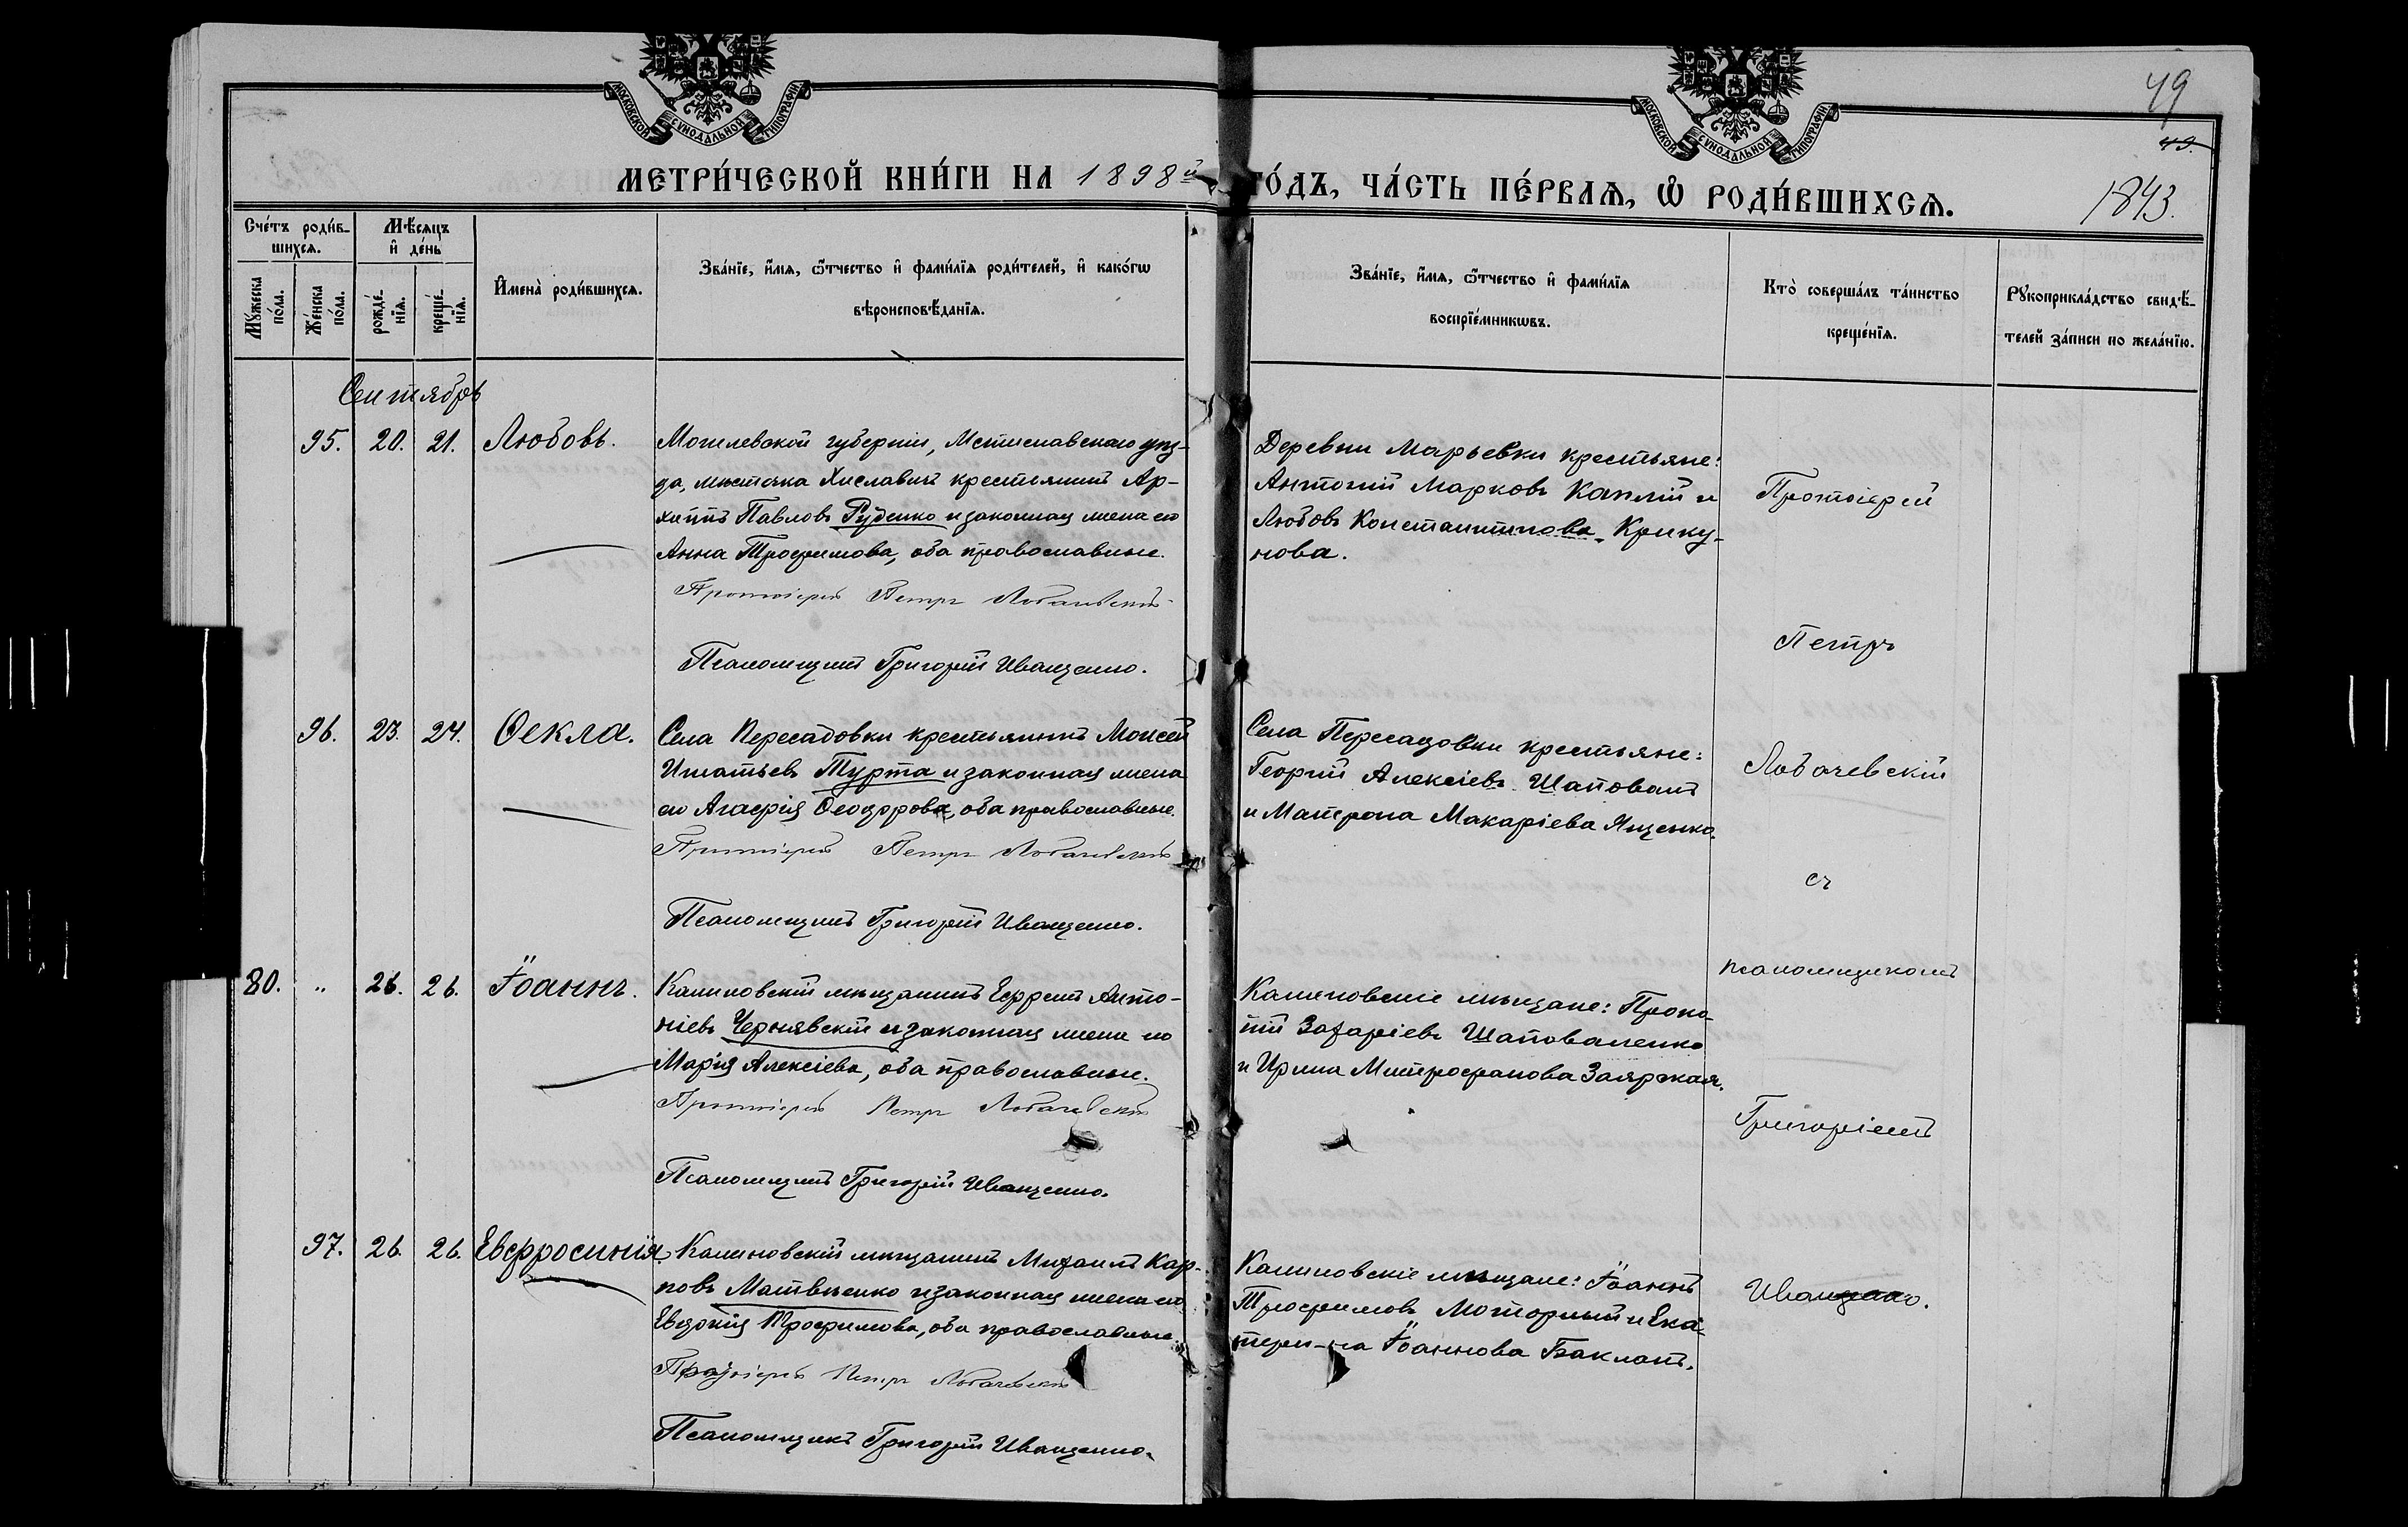 МОСКОВСКОЙ СУНОДАЛЬНОЙ ТИПОГРАФІИ
МОСКОВСКОЙ СУНОДАЛЬНОЙ ТИПОГРАФІИ
49
49.
МЕТРИ́ЧЕСКОЙ КНИ́ГИ НА 1898й ГО́ДЪ, ЧА́СТЬ ПЕ́РВАЯ, Ѿ РОДИ́ВШИХСЯ.
1843.
Сче́тъ роди́в-
шихся.
Мѣ́сяцъ
и҆ де́нь
Мꙋ́жеска
по́ла.
Же́нска
по́ла.
рожде́-
нїя.
креще́-
нїя.
И҆мена̀ роди́вшихся.
Зва́нїе, и҆́мя, ѻ҆́тчество и҆ фами́лїя роди́телей, и҆ како́гѡ
вѣроисповѣ́данїя.
Зва́нїе, и҆́мя, ѻ҆́тчество и҆ фами́лїя
воспрїе́мникѡвъ.
Кто̀ соверша́лъ та́инство
креще́нїя.
Рꙋкоприкла́дство свидѣ́-
телей за́писи по жела́нїю.
Сентябрь
95. 20. 21. Любовь.
Могилевской губерніи, Мстиславскаго уѣз-
да, мѣстечка Хиславичъ крестьянинъ Ар-
хиппъ Павловъ Руденко и законная жена его
Анна Трофимова, оба православные.
Протоіерей Петръ Лобачевскій
Псаломщикъ Григорій Иващенко.
Деревни Марьевки крестьяне:
Антоній Марковъ Каплій и
Любовь Константинова Крику-
нова.
Протоіерей
Петръ
Лобачевскій
съ
псаломщикомъ
Григоріемъ
Иващенко.
96. 23. 24. Ѳекла.
Села Пересадовки крестьянинъ Моисей
Игнатьевъ Турта и законная жена
его Агафія Ѳеодорова, оба православные.
Протоіерей Петръ Лобачевскій
Псаломщикъ Григорій Иващенко.
Села Пересадовки крестьяне:
Георгій Алексіевъ Шаповалъ
и Матрона Макаріева Яценко.
80. " 26. 26. Іоаннъ.
Калиновскій мѣщанинъ Ефремъ Анто-
ніевъ Чернявскій и законная жена его
Марія Алексіева, оба православные.
Протоіерей Петръ Лобачевскій
Псаломщикъ Григорій Иващенко.
Калиновскіе мѣщане: Проко-
пій Захаріевъ Шаповаленко
и Ирина Митрофанова Заяржая.
97. 26. 26. Евфросинія.
Калиновскій мѣщанинъ Михаилъ Кар-
повъ Матвѣенко и законная жена его
Евдокія Трофимова, оба православные.
Протоіерей Петръ Лобачевскій
Псаломщикъ Григорій Иващенко.
Калиновскіе мѣщане: Іоаннъ
Трофимовъ Моторный и Ека-
тери-на Іоаннова Бакланъ.